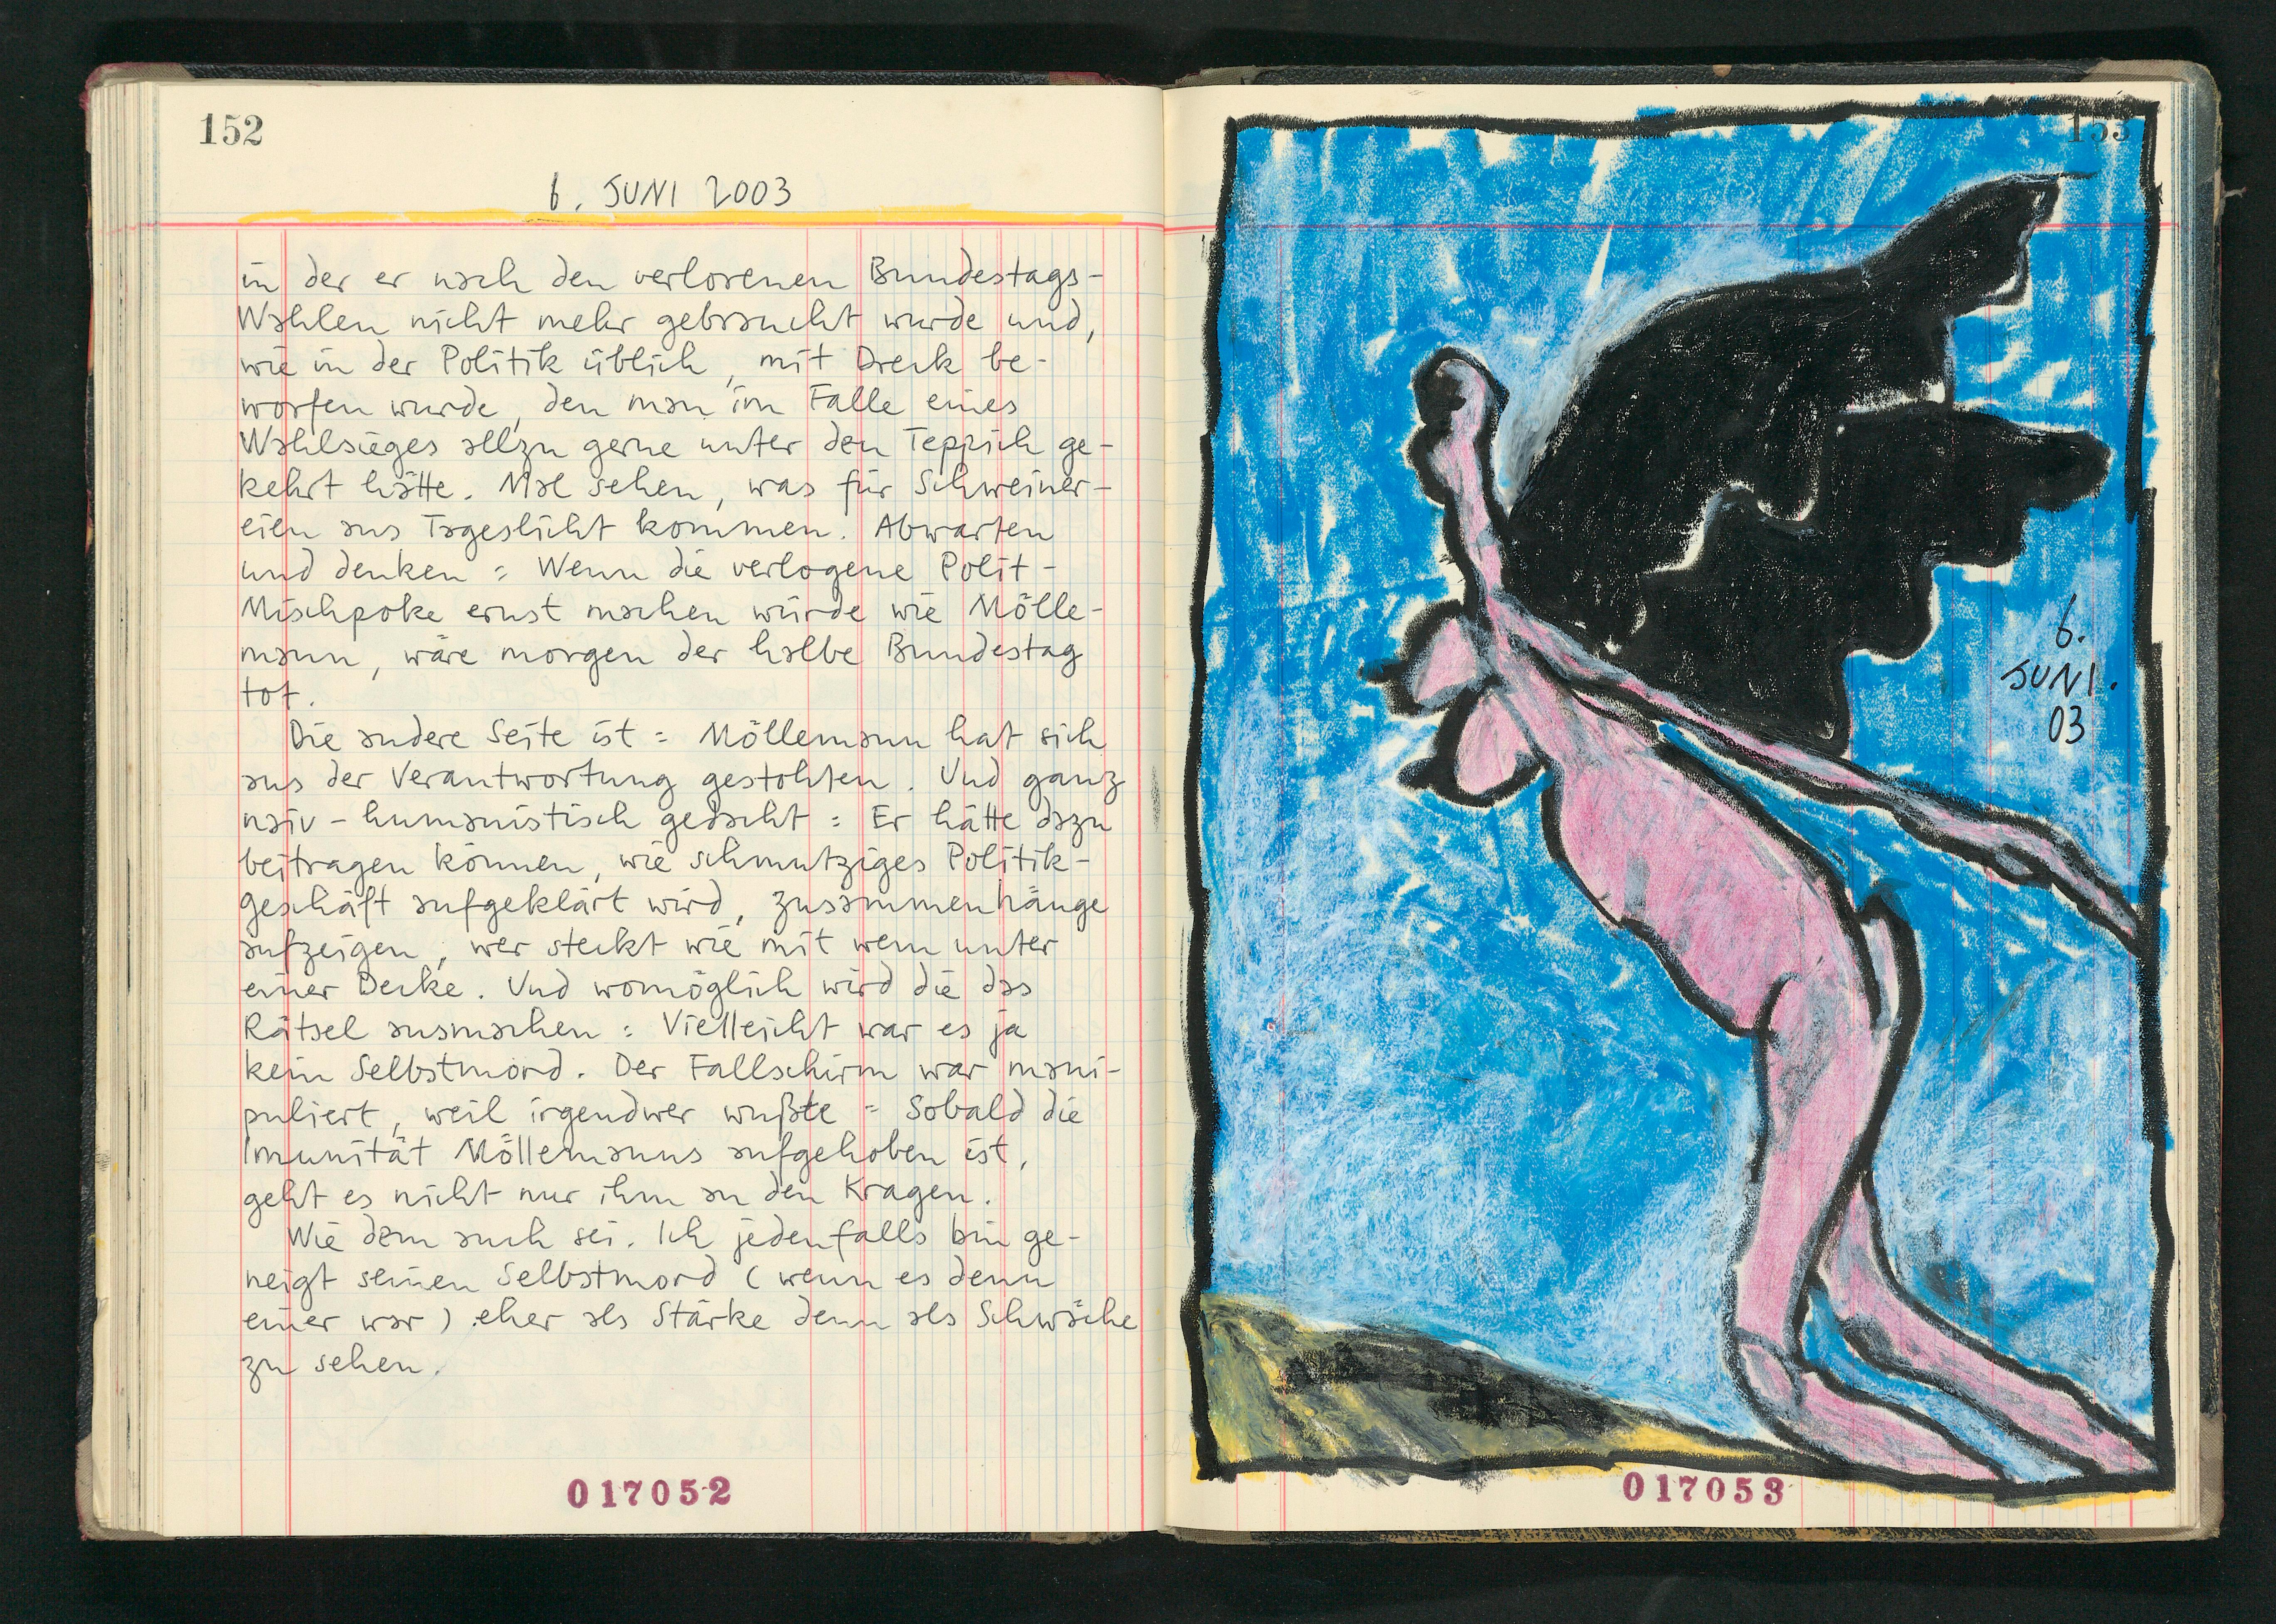 152
6. JUNI 2003
in der er nach den verlorenen Bundestags-
Wahlen nicht mehr gebraucht wurde und,
wie in der Politik üblich, mit Dreck be-
worfen wurde, den man im Falle eines
Wahlsieges allzu gerne unter den Teppich ge-
kehrt hätte. Mal sehen, was für Schweiner-
eien ans Tageslicht kommen. Abwarten
und denken: Wenn die verlogene Polit-
Mischpoke ernst machen würde wie Mölle-
mann, wäre morgen der halbe Bundestag
tot.
Die andere Seite ist: Möllemann hat sich
aus der Verantwortung gestohlen. Und ganz
naiv-humanistisch gedacht: Er hätte dazu
beitragen können, wie schmutziges Politik-
geschäft aufgeklärt wird, zusammenhänge
aufzeigen, wer steckt wie mit wem unter
einer Decke. Und womöglich wird die das
Rätsel ausmachen: Vielleicht war es ja
kein Selbstmord. Der Fallschirm war mani-
puliert, weil irgendwer wußte: Sobald die
Imunität Möllemanns aufgehoben ist,
geht es nicht nur ihm an den Kragen.
Wie dem auch sei. Ich jedenfalls bin ge-
neigt seinen Selbstmord (wenn es denn
einer war) eher als Stärke denn als Schwäche
zu sehen.
017052
153
6.
JUNI.
03
017053